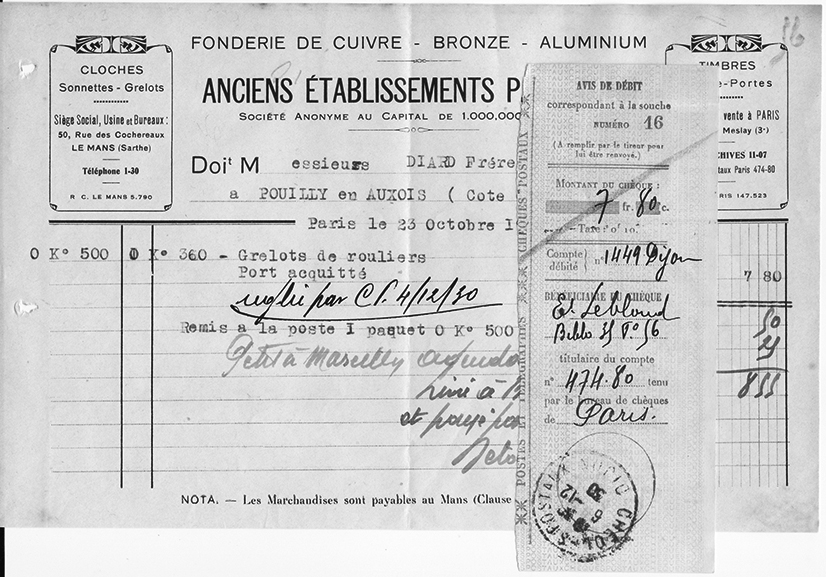 56
FONDERIE DE CUIVRE - BRONZE - ALUMINIUM
CLOCHES
Sonnettes - Grelots
Siège Social, Usine et Bureaux :
50, Rue des Cochereaux
LE MANS (Sarthe)
Téléphone 1-30
R C. LE MANS 5.790
ANCIENS ÉTABLISSEMENTS P
SOCIÉTÉ ANONYME AU CAPITAL DE 1.000,000
TIMBRES
e-Portes
vente à PARIS
Meslay (3e)
CHIVES 11-07
taux Paris 474-80
RIS 147.523
Doit M essieurs DIARD Frére
a POUILLY en AUXOIS ( Cote
Paris le 23 Octobre 1
0 K° 500 0 K° 360 - Grelots de rouliers
Port acquitté
7 80
réglé par C.P. 4/12/30
Remis a la poste I paquet 0 K° 500
50
25
855
Petit à Marcilly
Livré à
et payé
NOTA. — Les Marchandises sont payables au Mans (Clause
POSTES ET TÉLÉGRAPHES CHÈQUES POSTAUX
AVIS DE DÉBIT
correspondant à la souche
NUMÉRO 16
(A remplir par le tireur pour
lui être renvoyé.)
MONTANT DU CHÈQUE :
7 fr. 80 c.
Taxe : 0f 10.
Compte débité n° 1449 Dijon
BÉNÉFICIAIRE DU CHÈQUE
Et. Leblond
titulaire du compte
n° 474.80 tenu
par le bureau de chèques
de Paris.
CHEQUES POSTAUX